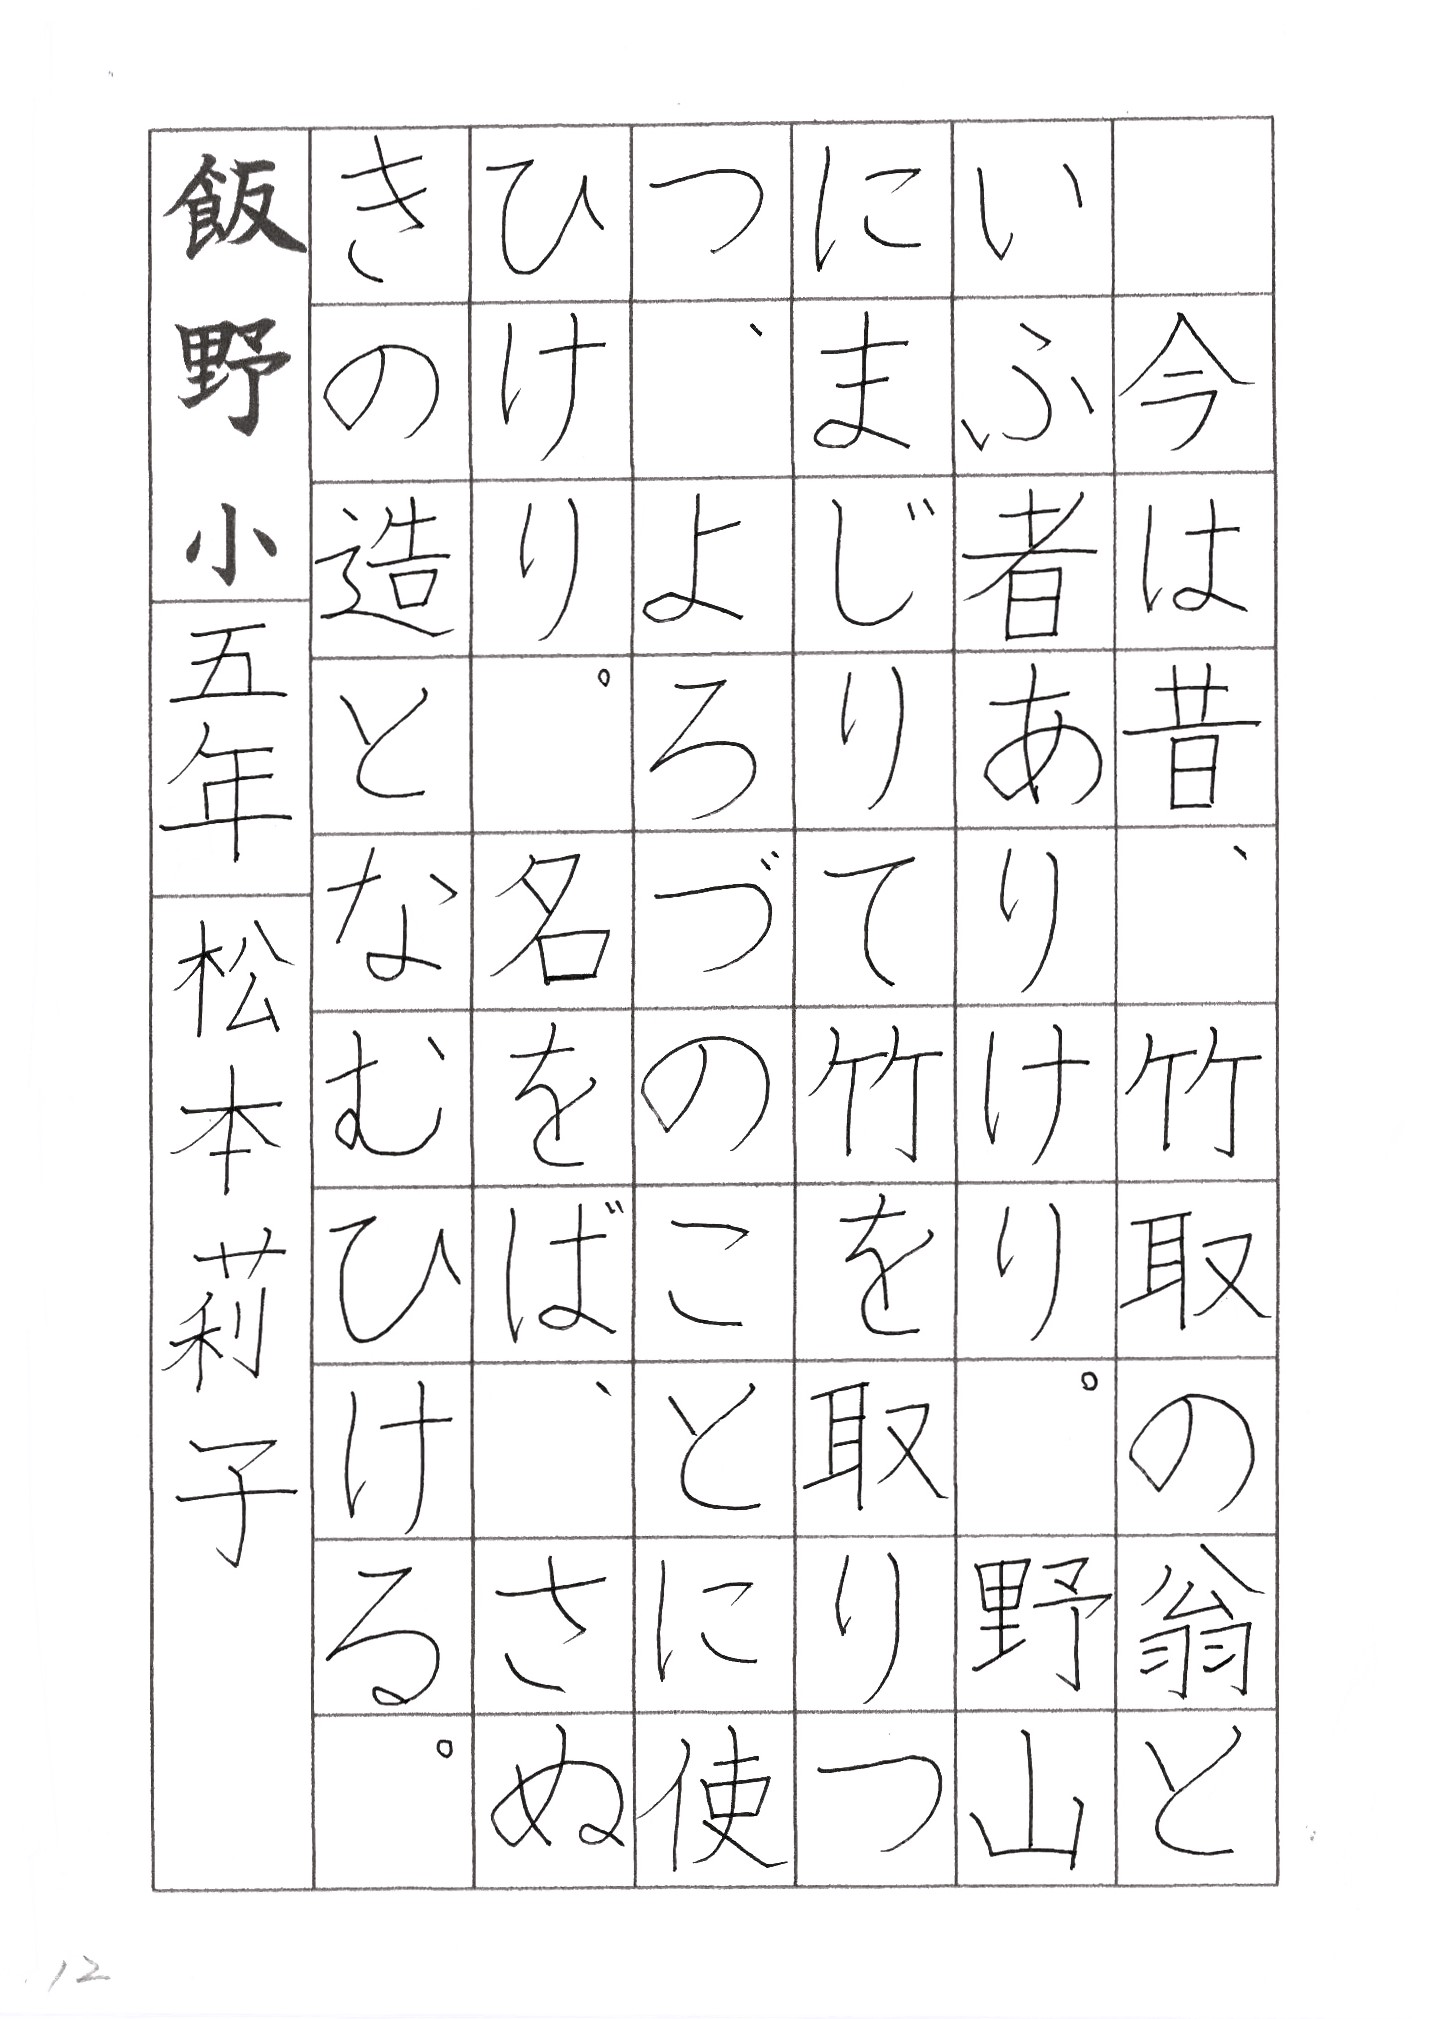 今は昔、竹取の翁と
いふ者ありけり。野山
にまじりて竹を取りつ
つ、よろづのことに使
ひけり。名をば、さぬ
きの造となむひける。
飯野小 五年 松本莉子
12